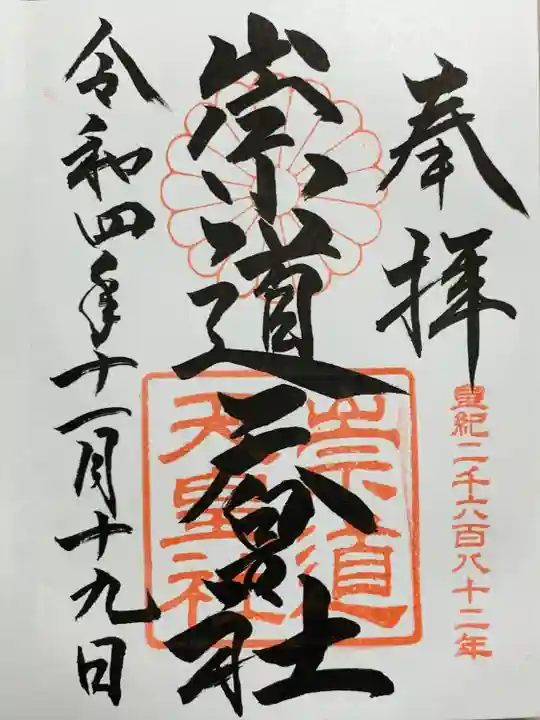 奉拝
皇紀二千六百八十二年
崇道天皇社
崇道
天皇社
令和四年十一月十九日